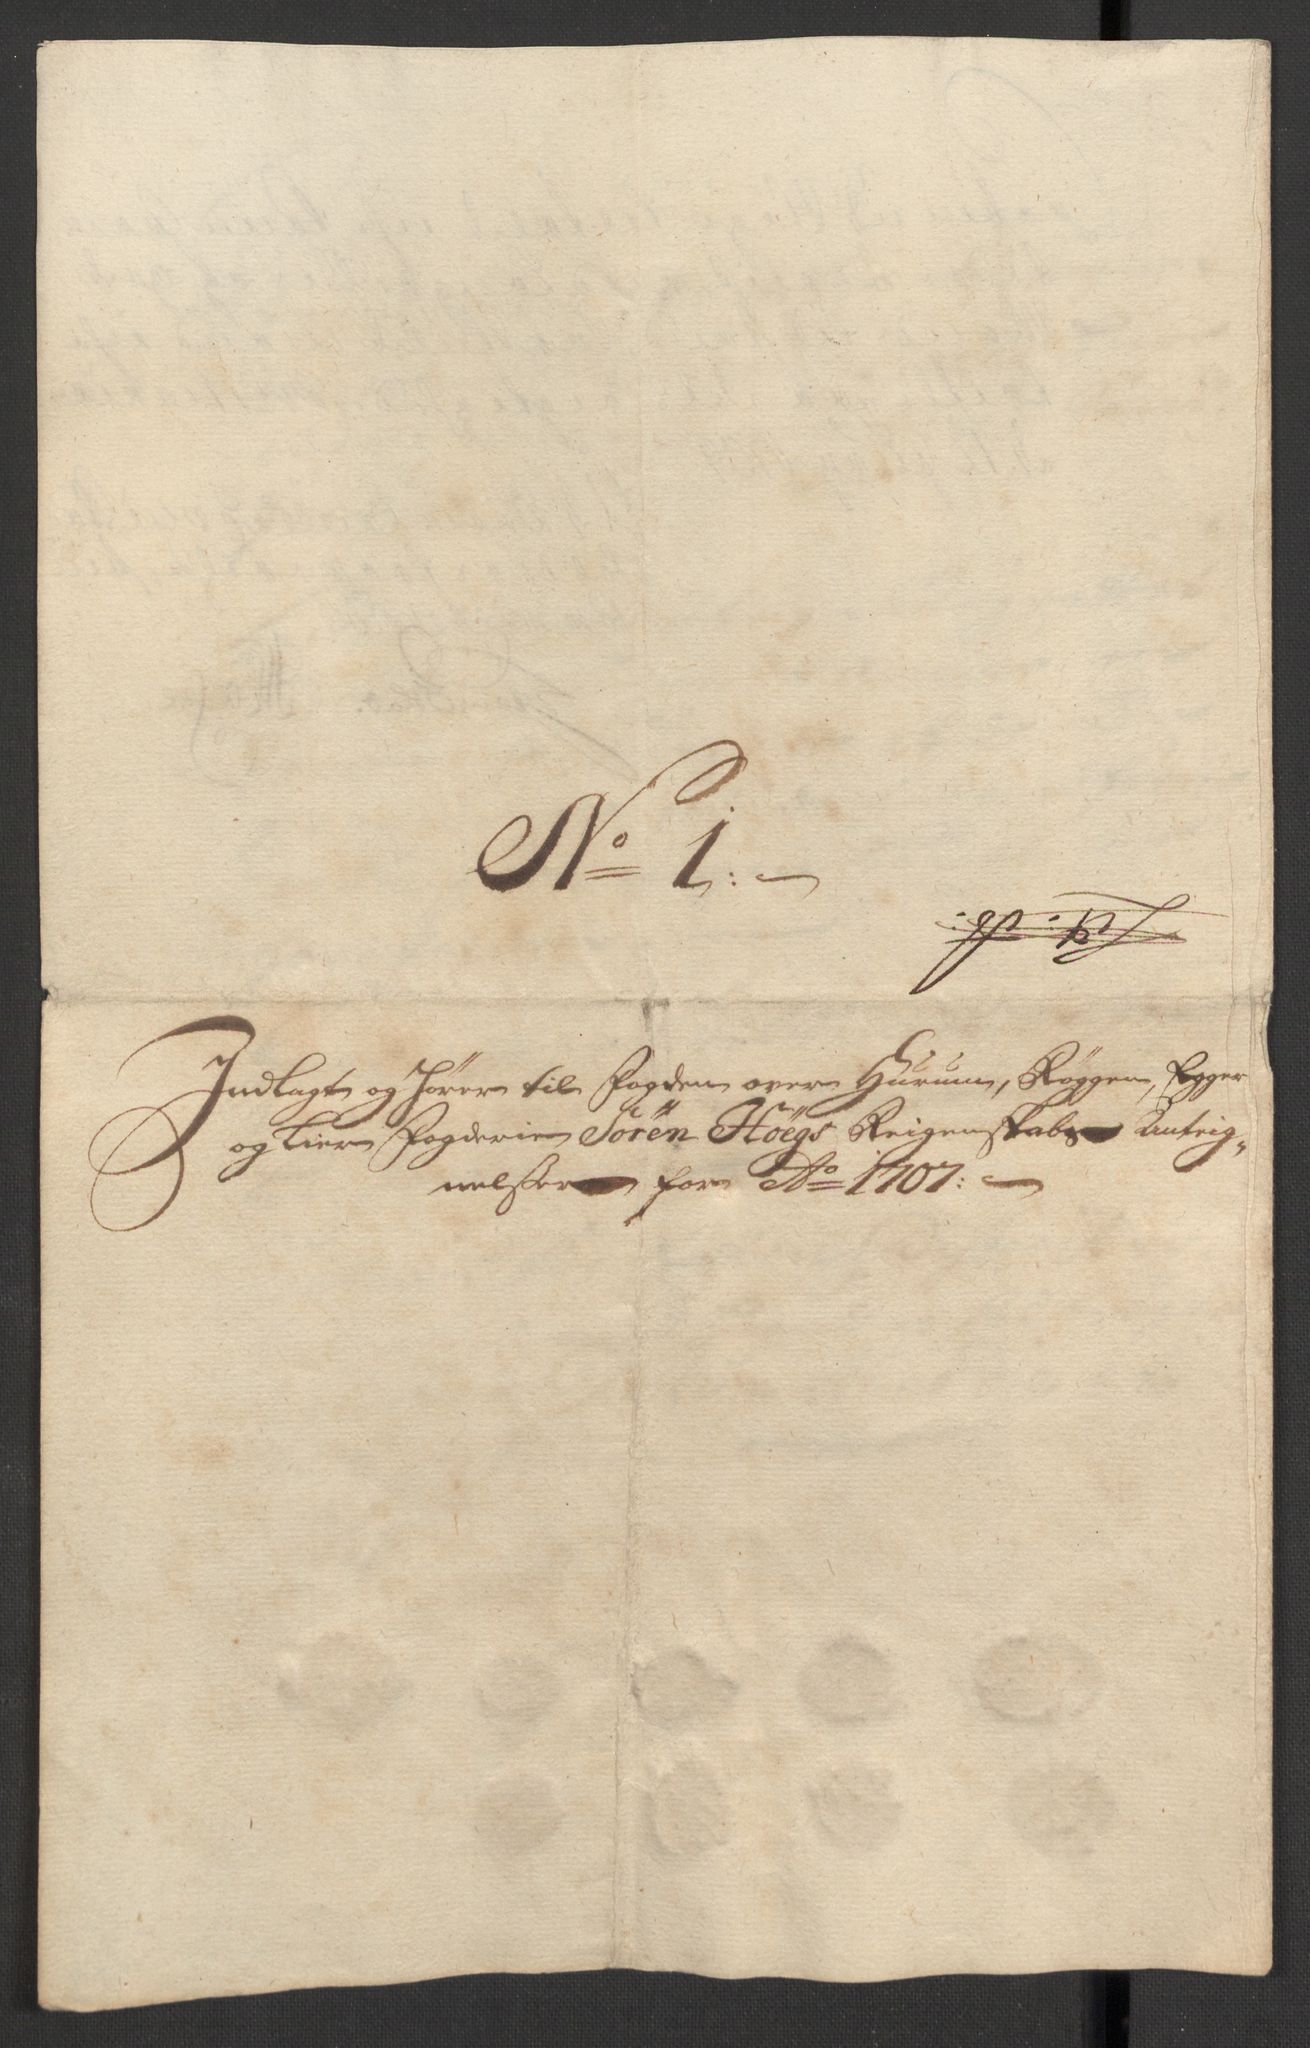 No 1:
Indlagt og hörer til Fogden over Hurum, Röggen, Egger
og Lier Fogderier Sören Höegs Reigenskabs Anteig-
nelsser for Ao 1707: